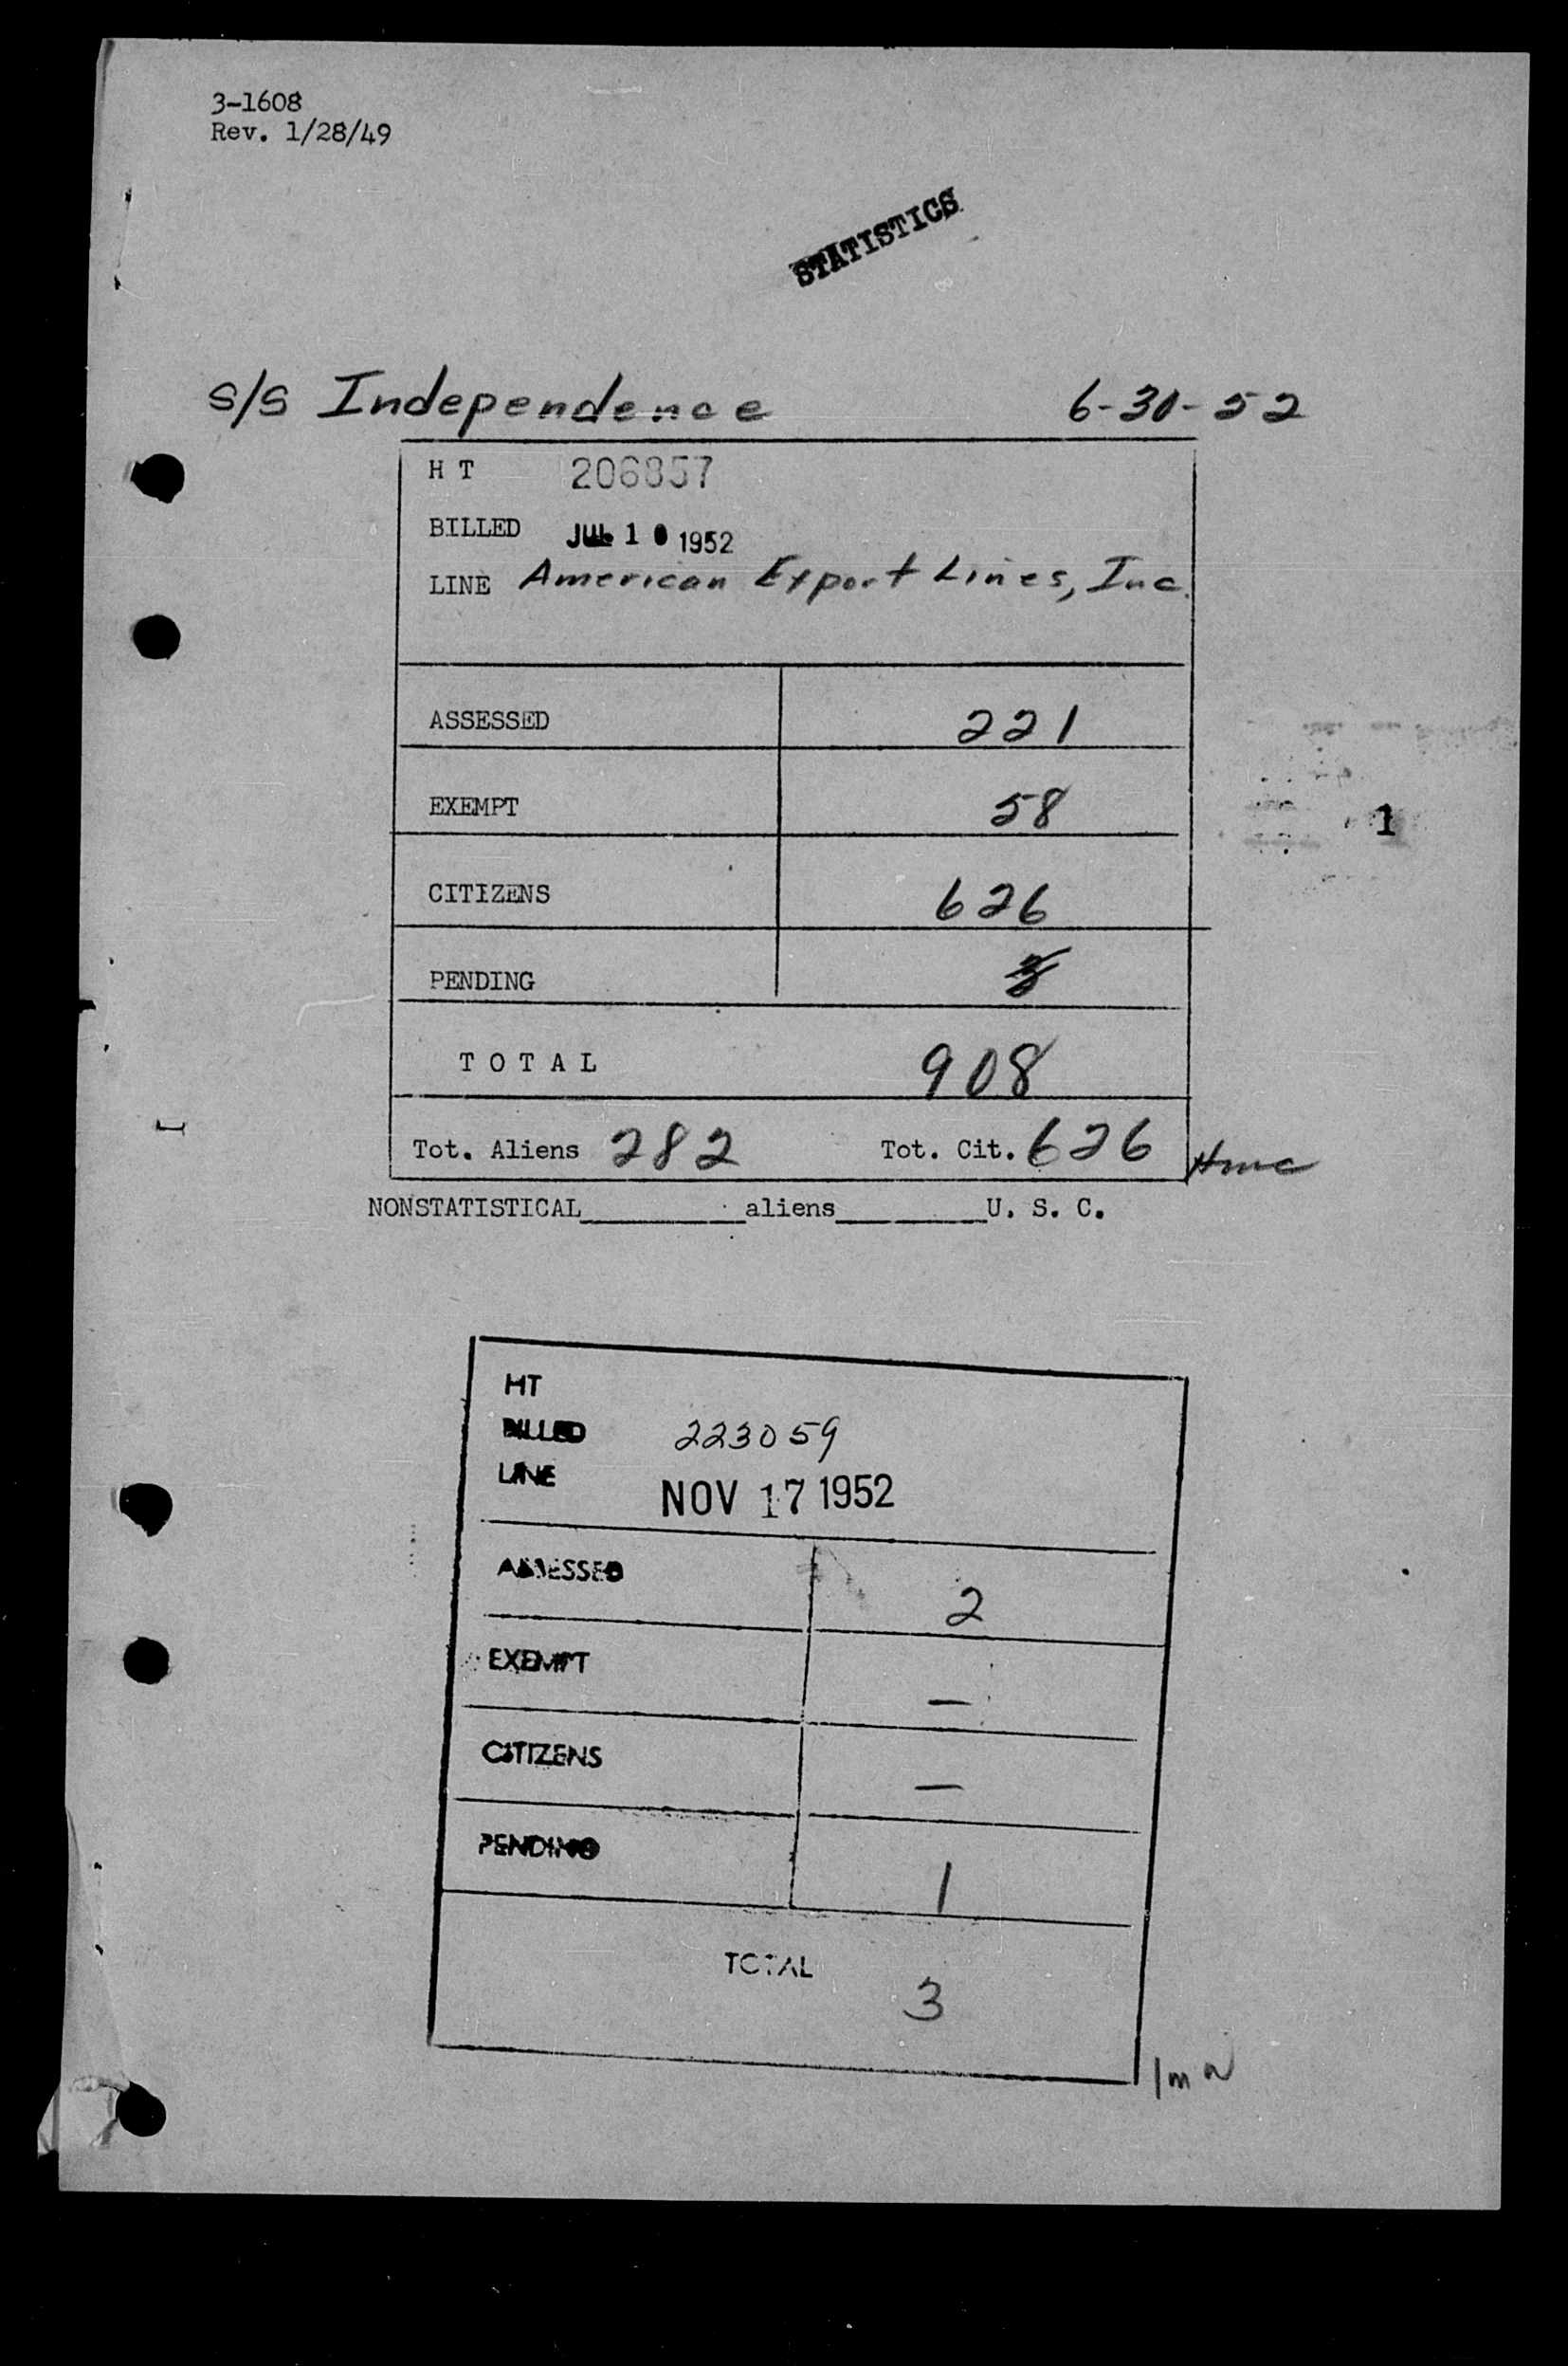 3-1608
Rev. 1/28/49
STATISTICS
S/S Independence 6-30-52
H T 206857
BILLED JUL 10 1952
LINE American Export Lines, Inc.
ASSESSED 221
EXEMPT 58
CITIZENS 626
1
PENDING 3
T O T A L 908
Tot. Aliens 282 Tot. Cit. 626 Hmc
NONSTATISTICAL__________aliens__________U. S. C.
HT
BILLED 223059
LINE NOV 17 1952
ASSESSED 2
EXEMPT —
CITIZENS —
PENDING 1
TOTAL 3